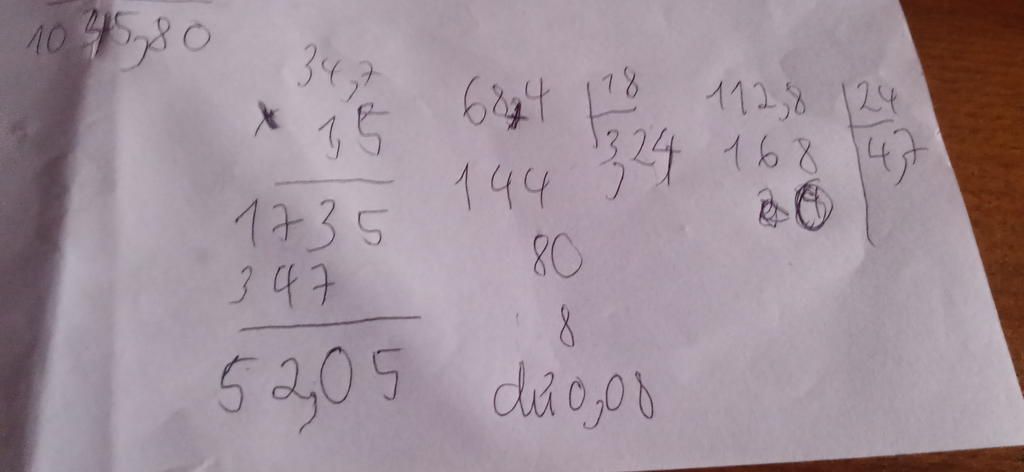 1045,80
34,7
x 1,5
1735
347
52,05
68,4 18
3,24
144
80
8
dư 0,08
112,8 24
168 4,7